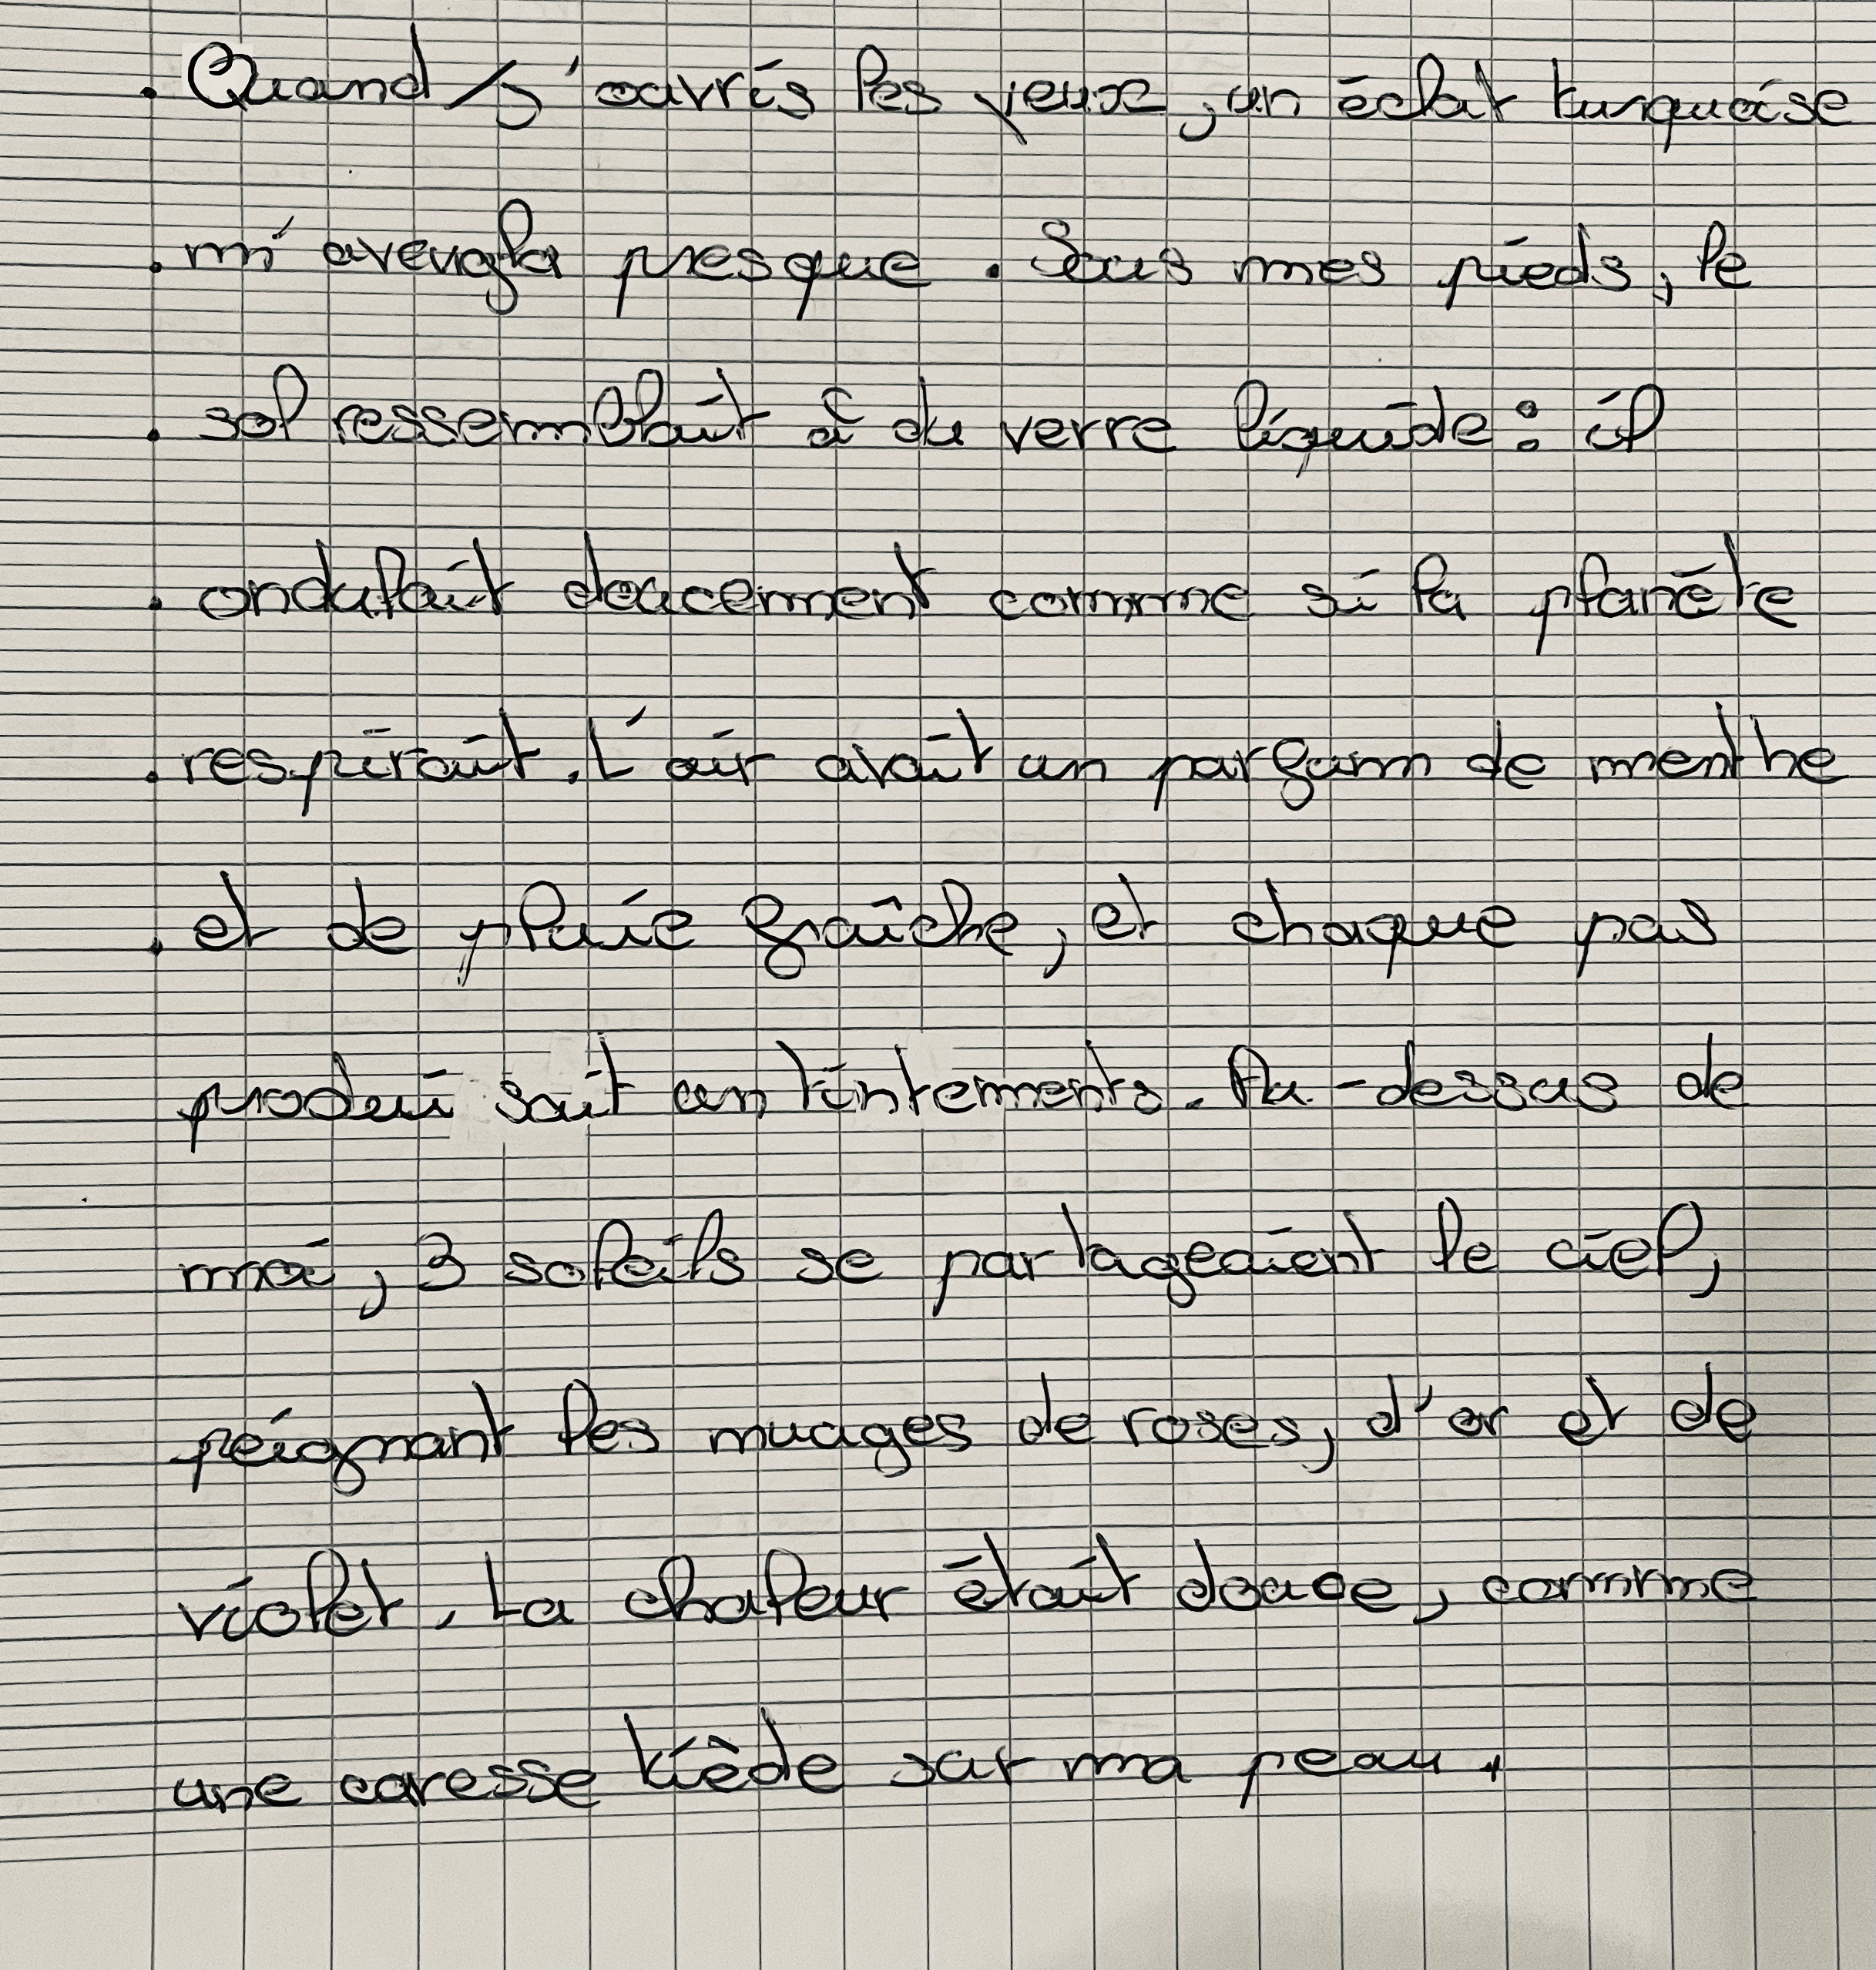 . Quand j'ouvris les yeux, un éclat turquoise
. m'aveugla presque. Sous mes pieds, le
. sol ressemblait à du verre liquide : il
. ondulait doucement comme si la planète
. respirait. L'air avait un parfum de menthe
. et de pluie fraîche, et chaque pas
produi sait un tintements. Au-dessus de
moi, 3 soleils se partageaient le ciel,
peignant les nuages de roses, d'or et de
violet. La chaleur était douce, comme
une caresse tiède sur ma peau.